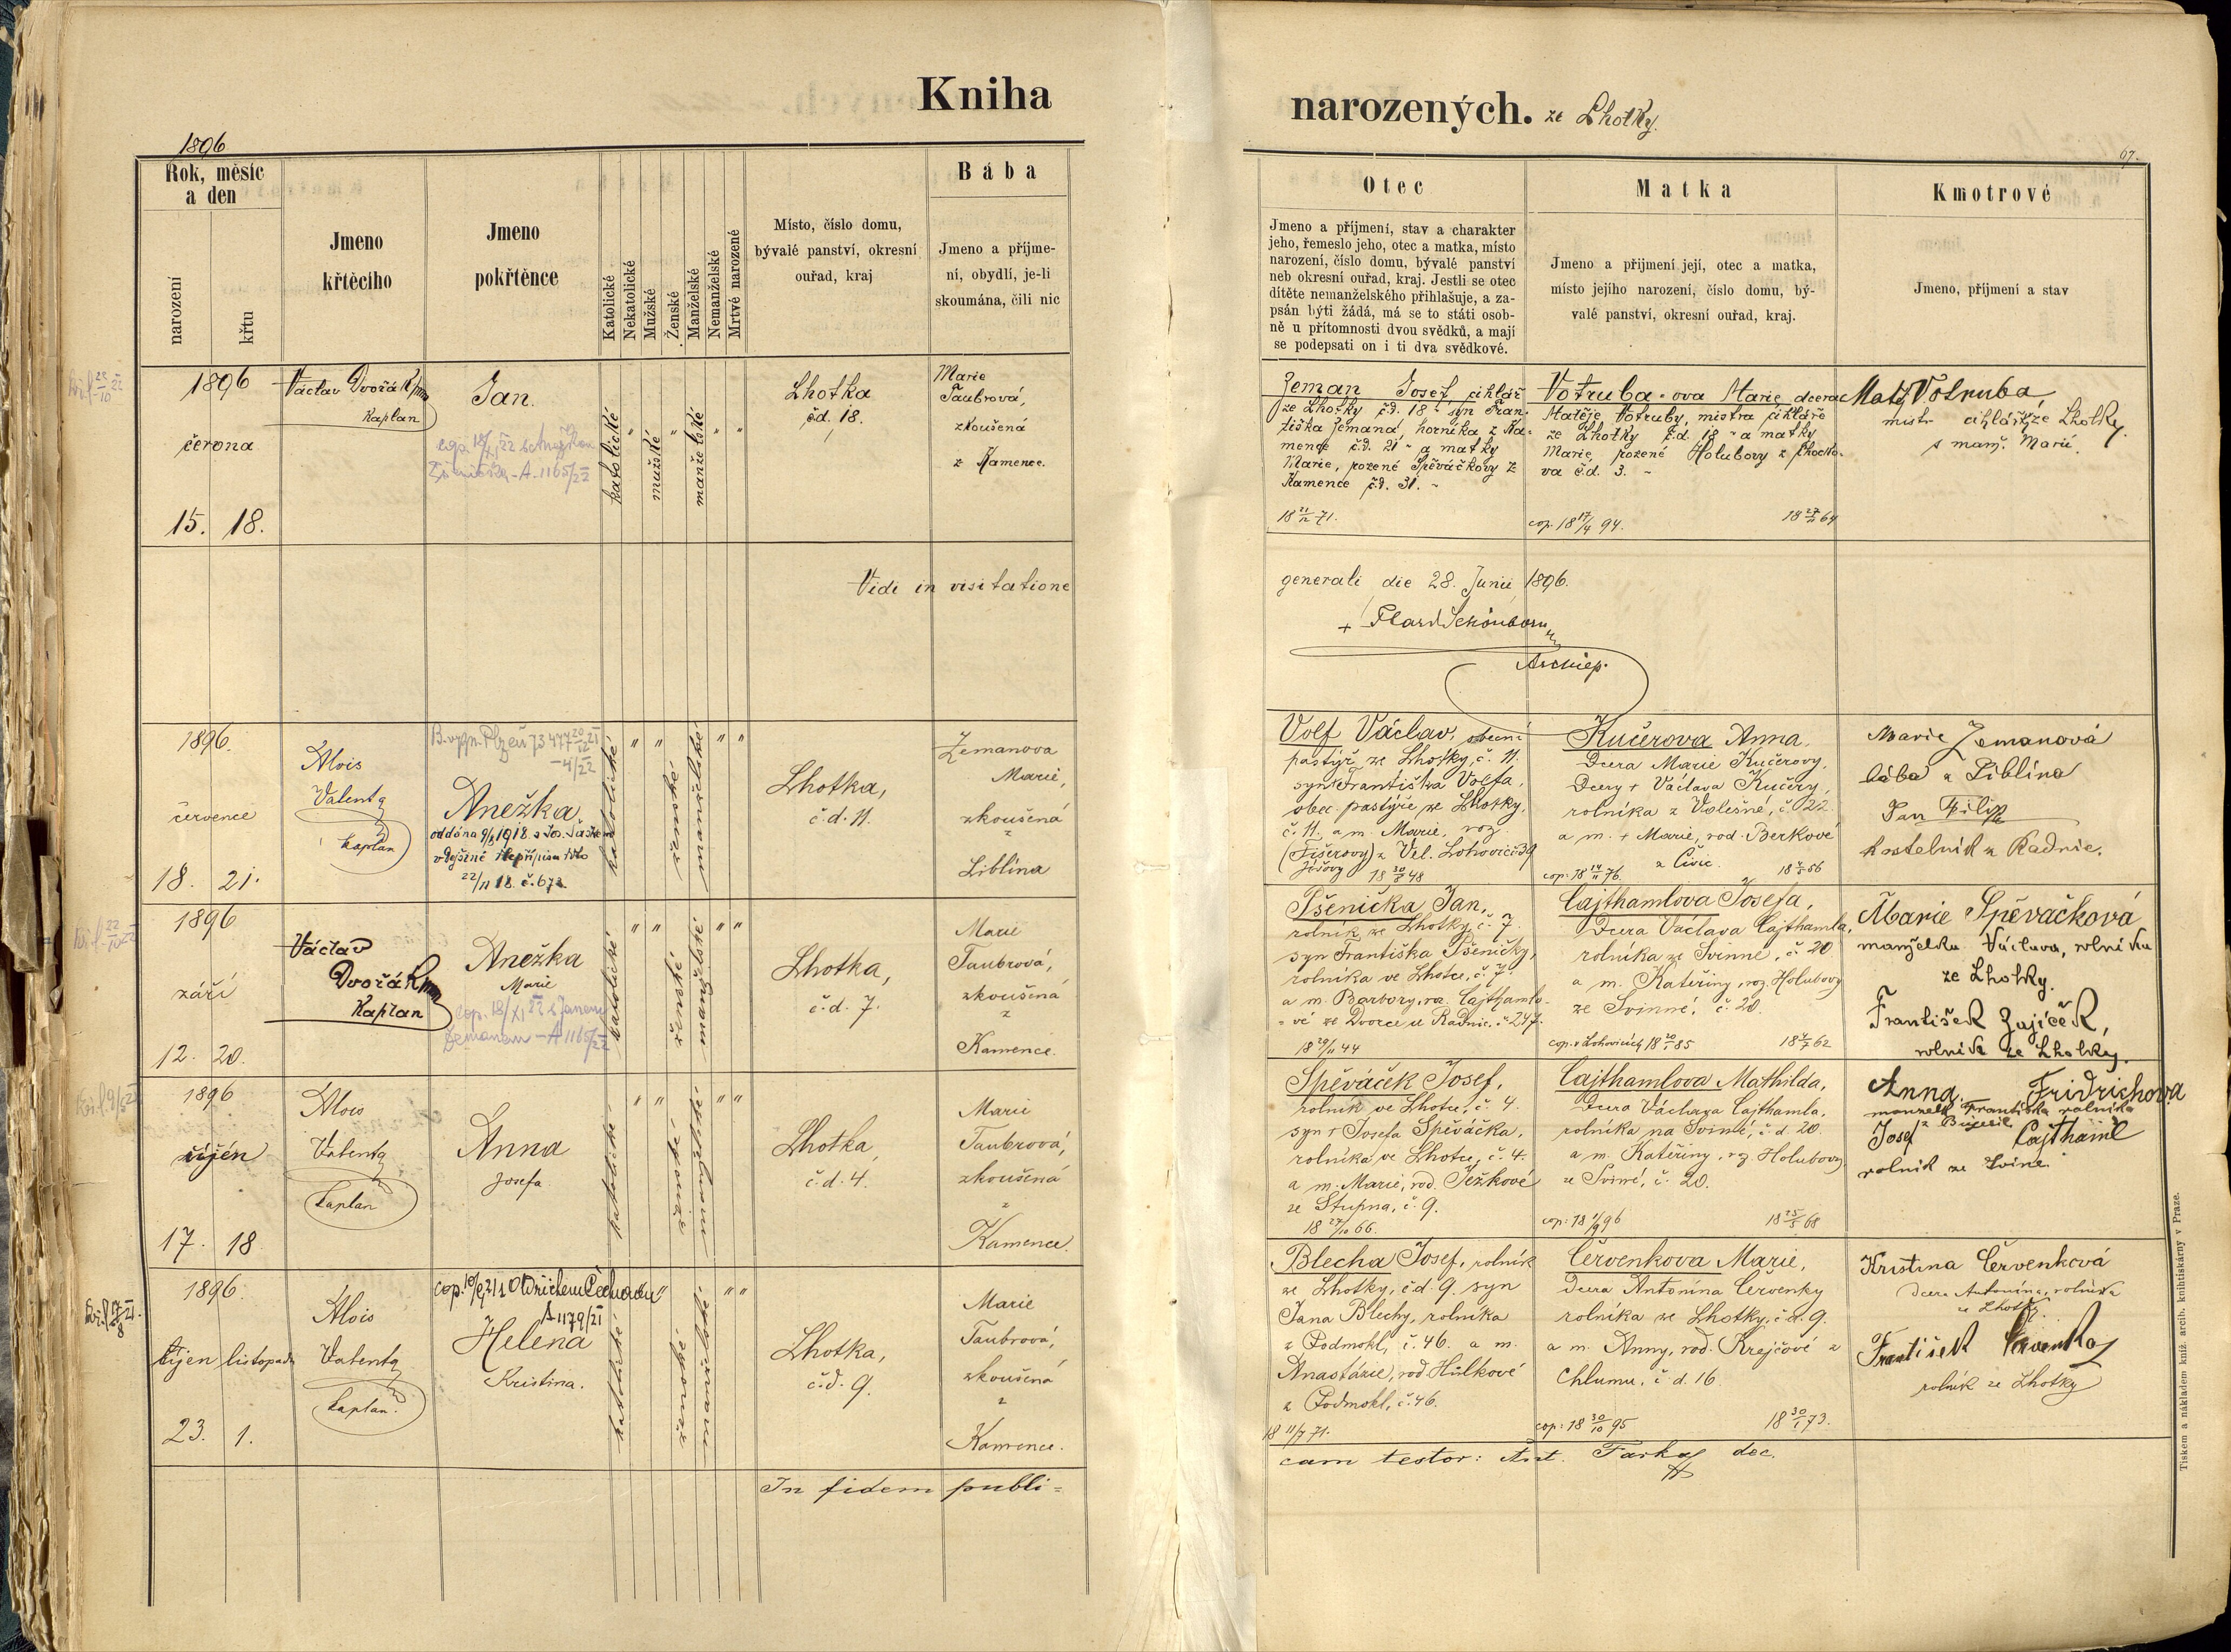 Kniha
narozených. ze Lhotky.
67.
1896
Rok, měsíc
a den
narození
křtu
Jmeno
křtěcího
Jmeno
pokřtěnce
Katolické
Nekatolické
Mužské
Ženské
Manželské
Nemanželské
Mrtvé narozené
Místo, číslo domu,
bývalé panství, okresní
ouřad, kraj
Bába
Jmeno a příjme-
ní, obydlí, je-li
skoumána, čili nic
Otec
Jmeno a příjmení, stav a charakter
jeho, řemeslo jeho, otec a matka, místo
narození, číslo domu, bývalé panství
neb okresní ouřad, kraj. Jestli se otec
dítěte nemanželského přihlašuje, a za-
psán býti žádá, má se to státi osob-
ně u přítomnosti dvou svědků, a mají
se podepsati on i ti dva svědkové.
Matka
Jmeno a přijmení její, otec a matka,
místo jejího narození, číslo domu, bý-
valé panství, okresní ouřad, kraj.
Kmotrové
Jmeno, příjmení a stav
1896
června
15. 18.
Václav Dvořák
Kaplan
Jan.
cop. 18/XI 22 s Anežkou
Pšeničkou - A-1165/22
katolické
"
mužské
"
manželské
" "
Lhotka
čd. 18.
Marie
Taubrová,
zkoušená
z Kamence.
Zeman Josef, cihlář
ze Lhotky čd. 18 - syn Fran-
tiška Zemana, horníka z Ka-
mence čd. 21 - a matky
Marie, rozené Spěváčkovy z
Kamence čd. 31. -
18 21/12 71.
Votruba-ova Marie, dcera
Matěje Votruby, mistra cihláře
ze Lhotky čd. 18 - a matky
Marie, rozené Holubovy z Chocko-
va čd. 3. -
cop. 18 17/4 94.
Matěj Votruba,
mistr cihlářský ze Lhotky
s manž. Marií.
Vidi in visitatione
generali die 28. Junii 1896.
+ Schönborn
Archiep.
1896.
července
18. 21.
Alois
Valenta
kaplan
Anežka
katolické
" "
ženské
manželské
" "
Lhotka,
č. d. 11.
Zemanova
Marie,
zkoušená
z
Liblína
Volf Václav, obecní
pastýř ve Lhotky, č. 11.
syn Františka Volfa,
obec. pastýře ve Lhotky,
č. 11. a m. Marie, roz.
(Fišerovy) z Vel. Lohovic č. 39
18 30/8 48
Kučerova Anna,
Dcera Marie Kučerovy,
Dcery + Václava Kučery,
rolníka z Volešné, č. 22
a m. + Marie, rod. Berkové
z Čivic.
cop: 18 14/11 76.
Marie Zemanová
bába z Liblína
Jan Filip
kostelník z Radnic.
1896
září
12. 20.
Václav
Dvořák
Kaplan
Anežka
Marie
cop. 18/XI 22 s Janem
Zemanem - A 1165/22
katolické
" "
ženské
manželské
" "
Lhotka,
č. d. 7.
Marie
Taubrová,
zkoušená
z
Kamence.
Pšenička Jan,
rolník ve Lhotky, č. 7.
syn Františka Pšeničky,
rolníka ve Lhotce, č. 7.
a m. Barbory, roz. Cajthamlo-
vé ze Dvorce u Radnic. č. 247.
18 29/11 44
Cajthamlova Josefa,
Dcera Václava Cajthamla,
rolníka ze Svinné, č. 20
a m. Kateřiny, roz. Holubovy
ze Svinné, č. 20.
cop. v Lohovicích 18 20/1 85
Marie Spěváčková
manželka Václava, rolníka
ze Lhotky.
František Zajíček,
rolník ze Lhotky.
1896
říjen
17. 18
Alois
Valenta
kaplan
Anna
Josefa
katolické
" "
ženské
manželské
" "
Lhotka,
č. d. 4.
Marie
Taubrová,
zkoušená
z
Kamence.
Spěváček Josef,
rolník ve Lhotce, č. 4.
syn + Josefa Spěváčka,
rolníka ve Lhotce, č. 4.
a m. Marie, rod. Ježkové
ze Stupna, č. 9.
18 27/10 66.
Cajthamlova Mathilda,
Dcera Václava Cajthamla,
rolníka na Svinné, č. d. 20.
a m. Kateřiny, rz. Holubovy
ze Svinné, č. 20.
18 25/5 68
Anna Fridrichova
manželka Františka rolníka
Josef Cajthaml
rolník ze Svinné.
1896.
říjen listopadu
23. 1.
Alois
Valenta
kaplan.
A 1179/21
Helena
Kristina.
katolické
ženské
manželské
" "
Lhotka,
č. d. 9.
Marie
Taubrová,
zkoušená
z
Kamence.
Blecha Josef, rolník
ve Lhotky, č. d. 9. syn
Jana Blechy, rolníka
z Podmokl, č. 46. a m.
Anastázie, rod. Hůlkové
z Podmokl, č. 46.
18 11/7 71.
Červenkova Marie,
Dcera Antonína Červenky
rolníka ve Lhotky, č. d. 9.
a m. Anny, rod. Krejčové z
Chlumu, č. d. 16.
cop: 18 30/10 95
18 30/1 73.
Kristina Červenková
dcera Antonína, rolníka
ze Lhotky
František Červenka
rolník ze Lhotky
In fidem publi-
cam testor: Ant. Farka dec.
Tiskem a nákladem kníž. arcib. knihtiskárny v Praze.